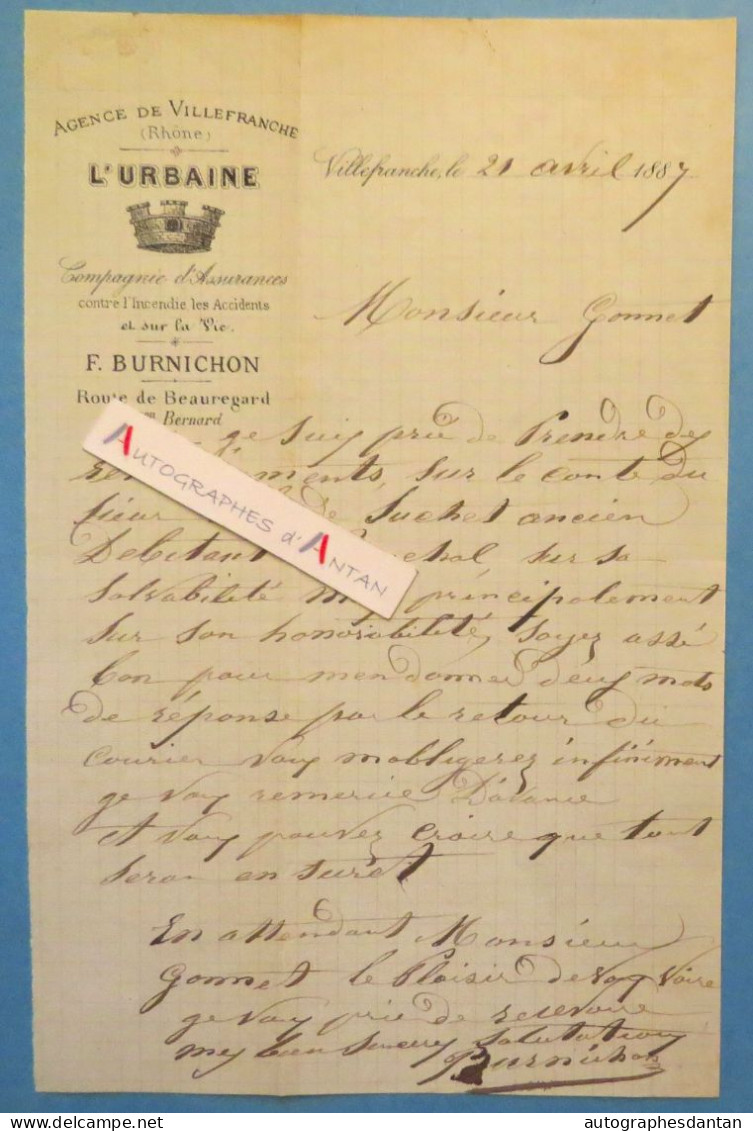 AGENCE DE VILLEFRANCHE
(Rhône)
L'URBAINE
Compagnie d'Assurances
contre l'Incendie les Accidents
et sur la Vie.
F. BURNICHON
Route de Beauregard
on Bernard
Villefranche, le 21 avril 1887
Monsieur Gonnet
ge suis prié de Prendre des
ments, sur le conte du
sieur de Suchet ancien
Debitant sur sa
solvabilité principalement
sur son honorabilité, soyez assé
bon pour men donner deuy mots
de réponse par le retour du
courier vous mobligerez infiniment
ge vous remercie D'avance
et vous pouvez croire que tout
sera en suret
En attendant Monsieur
Gonnet le Plaisir de vous voire
ge vous prie de recevoire
mes bien salutations
Burnichon
AUTOGRAPHES d'ANTAN
© autographesdantan